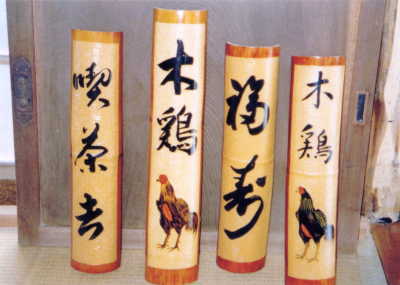 喫茶去
木鶏
福寿
木鶏